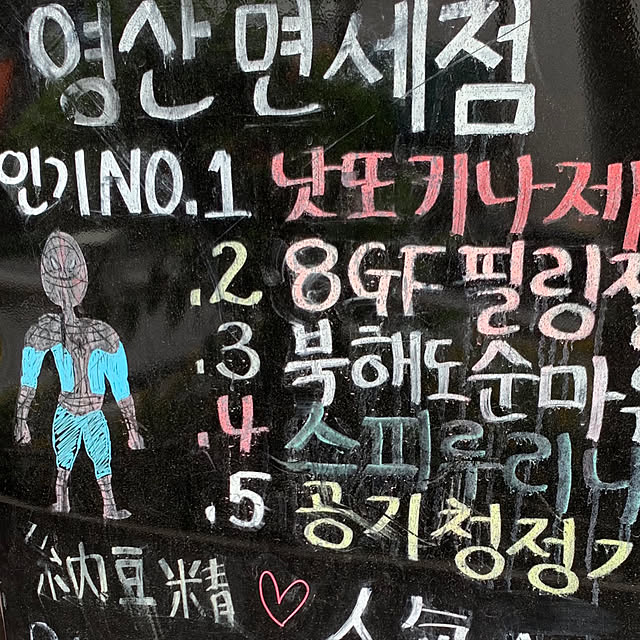 영산면세점
인기NO.1 낫또기나제
.2 8GF 필링
.3 북해도순마
.4 스피루리나
.5 공기청정기
納豆精 人気